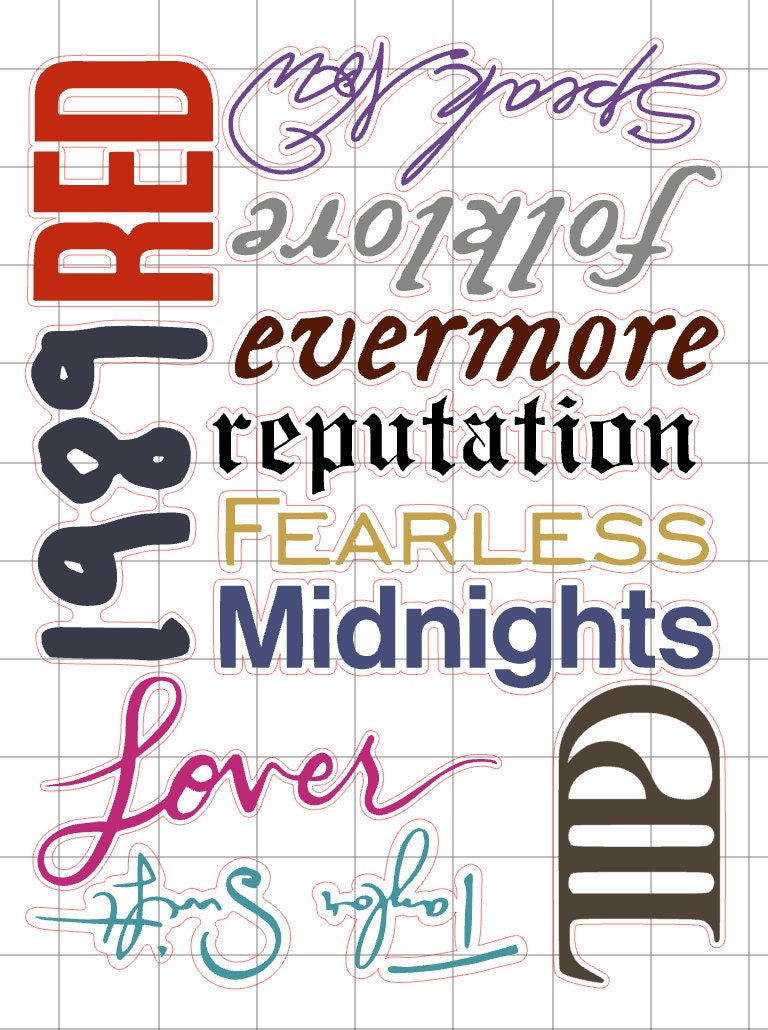 RED
Speak Now
folklore
evermore
reputation
FEARLESS
Midnights
1989
Lover
Taylor Swift
TTPD